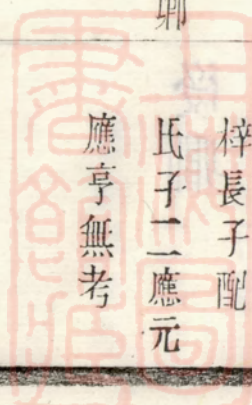 梓長子配
氏子二應元
應亨無考